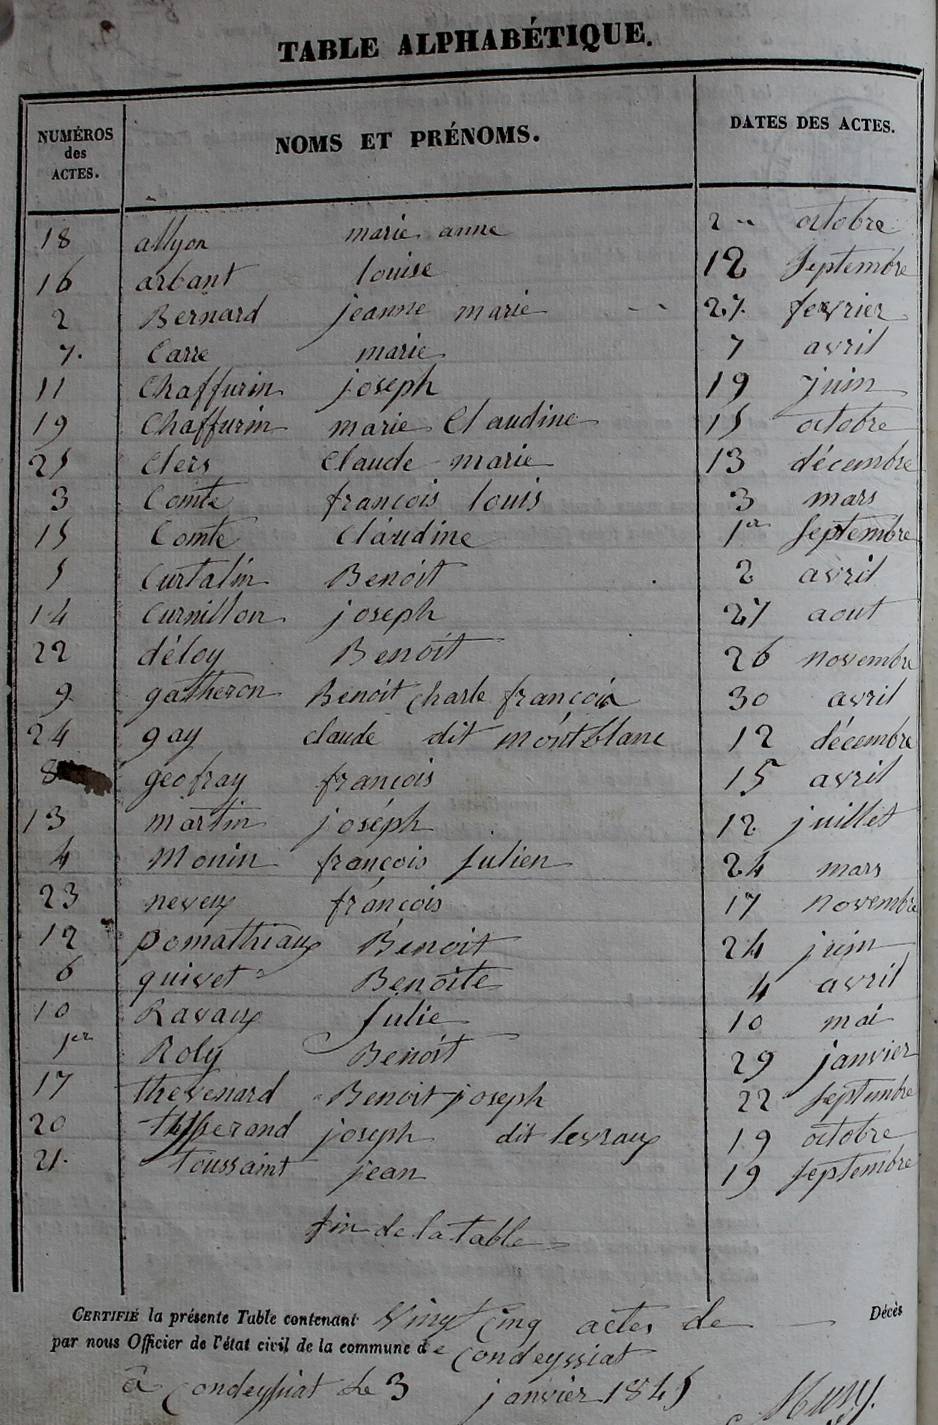 TABLE ALPHABÉTIQUE.
NUMÉROS des ACTES. NOMS ET PRÉNOMS. DATES DES ACTES.
18 allyon marie anne 2 octobre
16 arbant louise 12 Septembre
2 Bernard jeanne marie 27 fevrier
7. Carre marie 7 avril
11 Chaffurin joseph 19 juin
19 Chaffurin marie Claudine 15 octobre
25 Clers Claude marie 13 décembre
3 Comte françois louis 3 mars
15 Comte Claudine 1er Septembre
5 Curtalin Benoit 2 avril
14 Curnillon joseph 27 aout
22 déloy Benoit 26 novembre
9 gatheron Benoit Charle françois 30 avril
24 gay claude dit montblanc 12 décembre
8 geofray françois 15 avril
13 martin joséph 12 juillet
4 Monin françois Julien 24 mars
23 neveux françois 17 novembre
12 pomathiaux Benoit 24 juin
6 quivet Benoite 4 avril
10 Ravaux Julie 10 mai
1er Roly Benoit 29 janvier
17 thevenard Benoit joseph 22 Septembre
20 joseph dit levraux 19 octobre
21. toussaint jean 19 Septembre
fin de la table
CERTIFIÉ la présente Table contenant Vingt Cinq actes de Décès
par nous Officier de l'état civil de la commune de Condeyssiat
à Condeyssiat le 3 janvier 1845